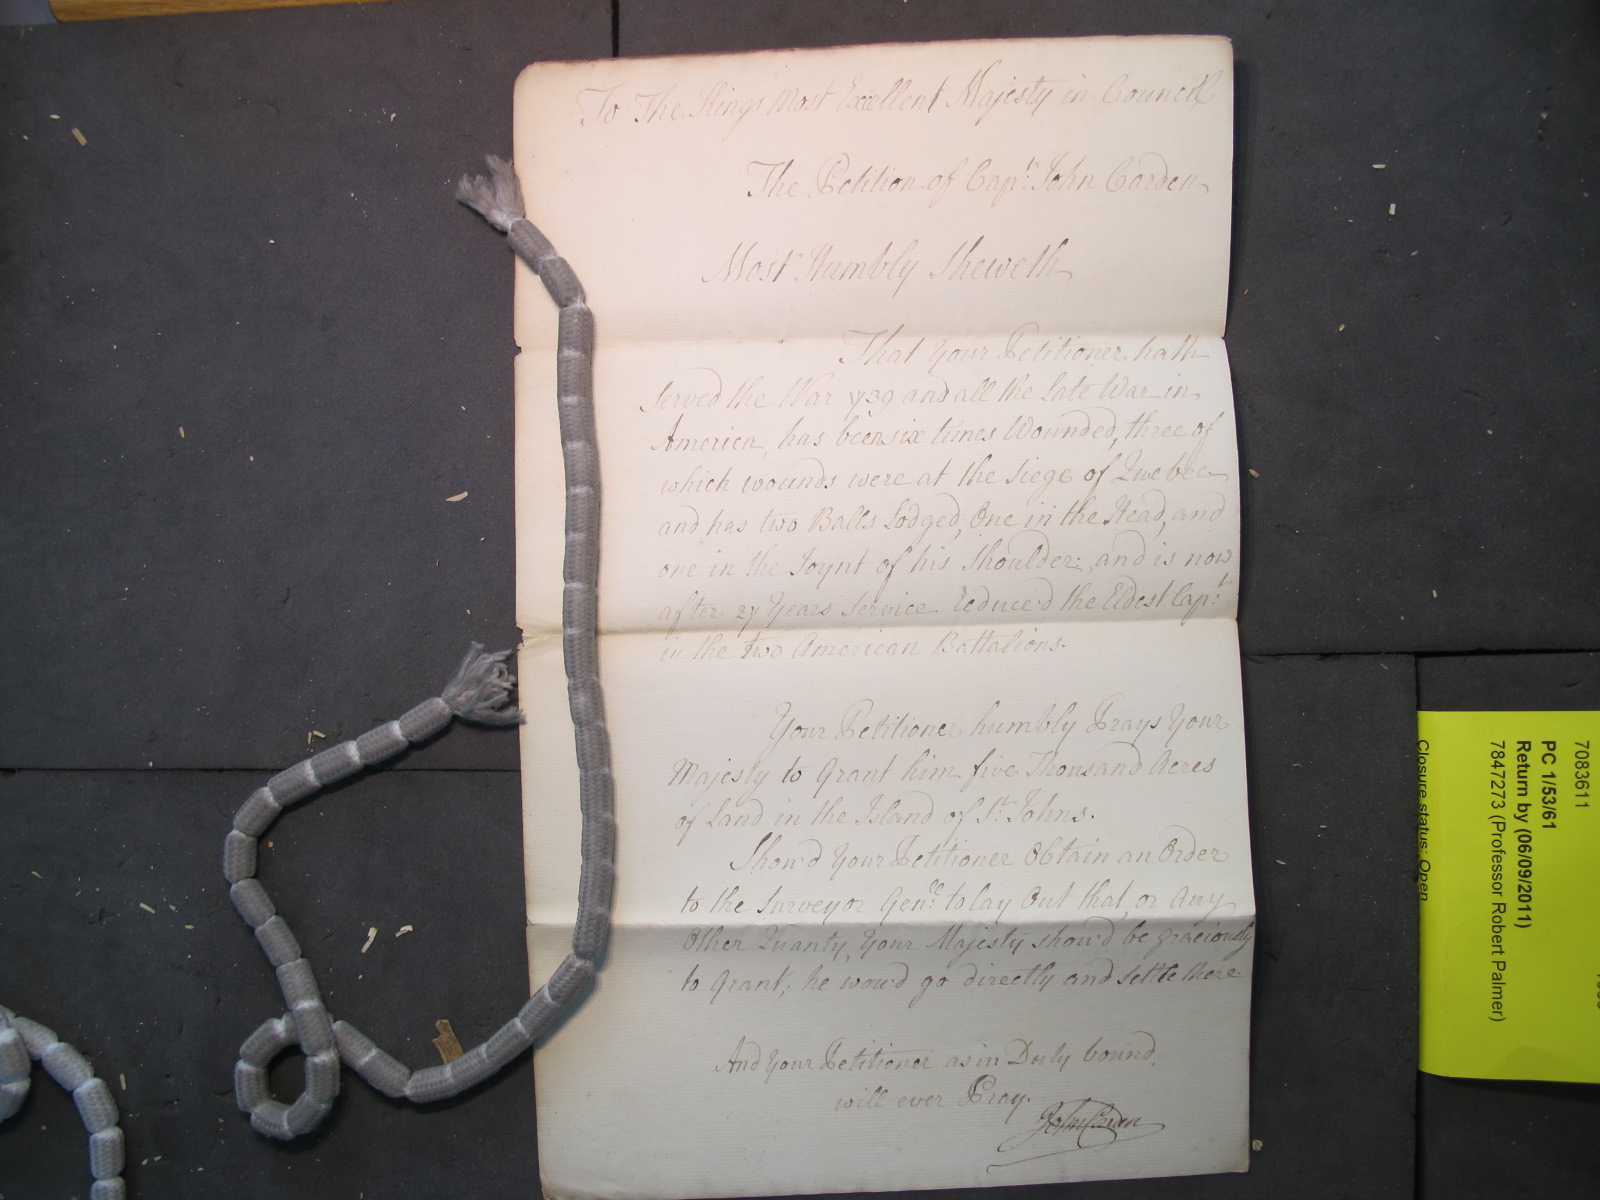 To The Kings Most Excellent Majesty in Council
The Petition of Capt. John Carden
Most Humbly Sheweth
That Your Petitioner hath
Served the War 1739 and all the Late War in
America, has been six times Wounded, three of
which wounds were at the Siege of Quebec
and has two Balls Lodged, One in the Head, and
one in the Joynt of his Shoulder: and is now
after 27 Years Service reduced the Eldest Capt.
in the two American Battalions.
Your Petitioner humbly Prays Your
Majesty to Grant him five Thousand Acres
of Land in the Island of St. Johns.
Shou'd Your Petitioner Obtain an Order
to the Surveyor Genll. to lay Out that, or Any
Other Quanty, Your Majesty shou'd be graciously
to Grant; he wou'd go directly and settle there
And Your Petitioner as in Duty bound,
will ever Pray.
John Carden
7083611
PC 1/53/61
Return by (06/09/2011)
7847273 (Professor Robert Palmer)
Closure status: Open